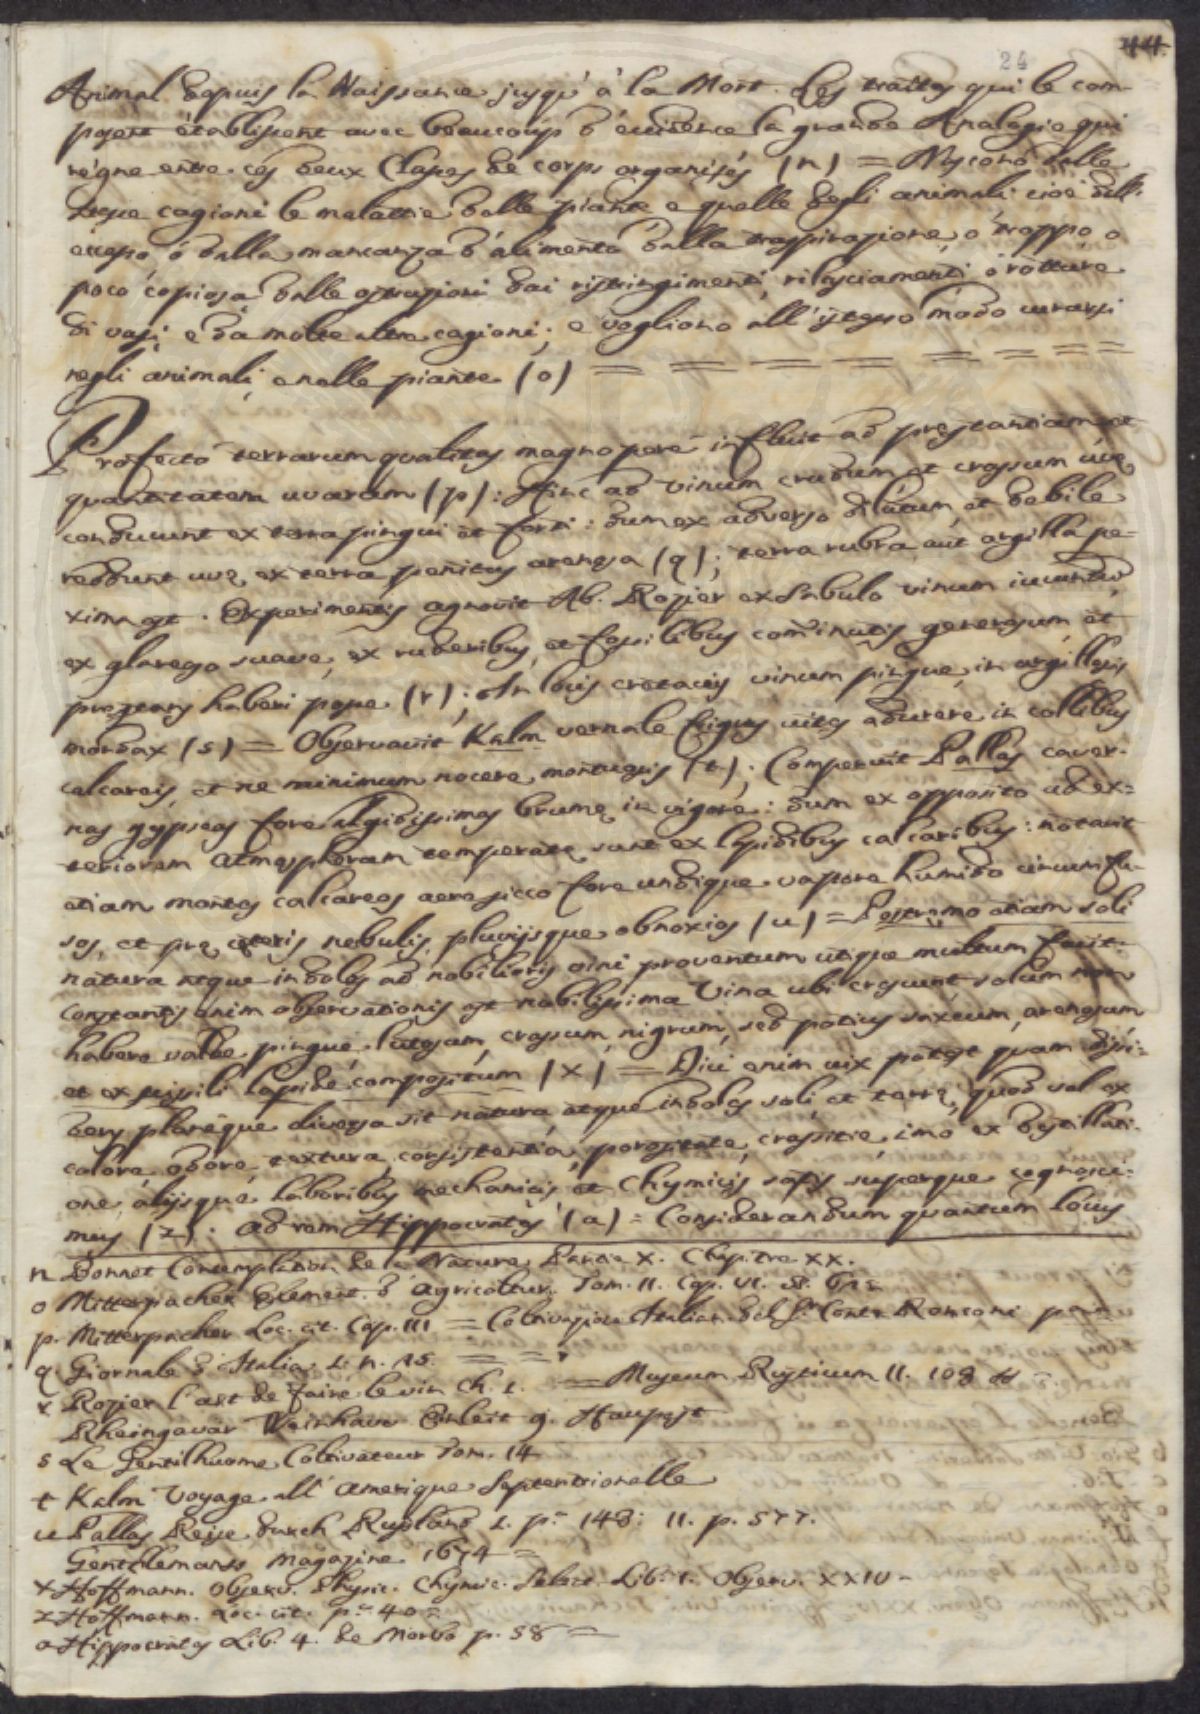 24 44.
Animal depuis la Naissance jusqu'à la Mort. Les traites qui le com-
posent établissent avec beaucoup d'evidence la grande Analogie qui
règne entre ces deux Classes de corps organisés (n) = Nascono dalle
stesse cagioni le malattie delle piante e quelle degli animali cioè dall'
eccesso ò dalla mancanza d'alimento dalla traspirazione o troppo o
poco copiosa dalle ostruzioni dai ristringimenti, rilasciamenti ò rotture
di vasi e da molte altre cagioni; e vogliono all'istesso modo curarsi
negli animali, e nelle piante (o) = = = = = = =
Profecto terrarum qualitas magnopere influit ad prestantiam et
quantitatem uvarum (p): Hinc ad vinum crudum et crassum uvę
conducunt ex terra pingui et forti: dum ex adverso dilutum, et debile
reddunt uvę ex terra penitus arenosa (q); terra rubra aut argilla pe-
xima est. Experimentis agnovit Ab. Rozier ex Sabulo vinum iucundum,
ex glareoso suave, ex ruderibus, et fossilibus comminutis generosum et
prestans haberi posse (r); In locis cretaceis vinum pingue, in argillosis
mordax (s) = Observavit Kalm vernale frigus vites adurere in collibus
calcareis, et ne minimum nocere montuosis (t); Comperuit Pallas caver-
nas gypseas fore algidissimas brumę in vigore: dum ex opposito ad ex-
teriorem Atmospheram temperatę sunt ex lapidibus calcaribus: notavit
etiam montes calcareos aere sicco fore undique vapore humido circumfu-
sos, et prę cęteris nebulis, pluvijsque obnoxios (u) = Postremo etiam soli
natura atque indoles ad nobilioris vini proventum utique multum facit:
Constantis enim observationis est nobilissima Vina ubi crescunt solum non
habere valde pingue, lutosum, crassum, nigrum, sed potius saxeum, arenosum
et ex fissili lapide compositum (x) = Dici enim vix potest quam diffi-
dens plareque diversa sit natura atque indoles soli, et terrę, quod vel ex
calore, odore, textura, consistentia, porositate, crassitie, imo ex destillati-
one alijsque laboribus mechanicis et Chymicis satis superque cognosci-
mus (z). ad rem Hippocrates (a) = Considerandum quantum locus
n Bonnet Contemplation de la Nature Partie X. Chapitre XX.
o Mitterpacher Element. d'agricoltur. Tom. II. Cap. VI. §.
p. Mitterpacher Loc. cit. Cap. III = Coltivazion Italian. del Sr. Conte Ronconi
q Giornale d'Italia 1. n. 15. = =
r Rozier l'art de faire le vin Ch. 1. = Museum Rusticum II. 108
Rheingavar Weinhaver Einleit. g. Haupst
s Le Gentilhuome Coltivateur Tom. 14
t Kalm Voyage all' amerique Septentrionelle
u Pallas Reise durch Rusland 1. p.a 148: II. p. 577.
Gentzlemans magazine 1674 =
x Hoffmann. Observ. Physic. Chymic. Select. Lib. 1. Observ. XXIV-
z Hoffmann. Loc. cit. p.a 40 =
a Hippocrates Lib. 4. de Morbo p. 58 =